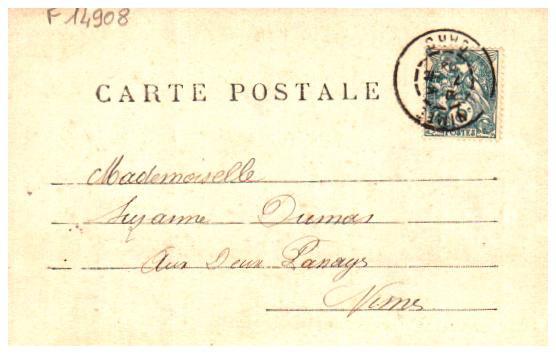 F 14908
CARTE POSTALE
POSTES
Mademoiselle
Suzanne Dumas
Aux Deux Panays
Nimes